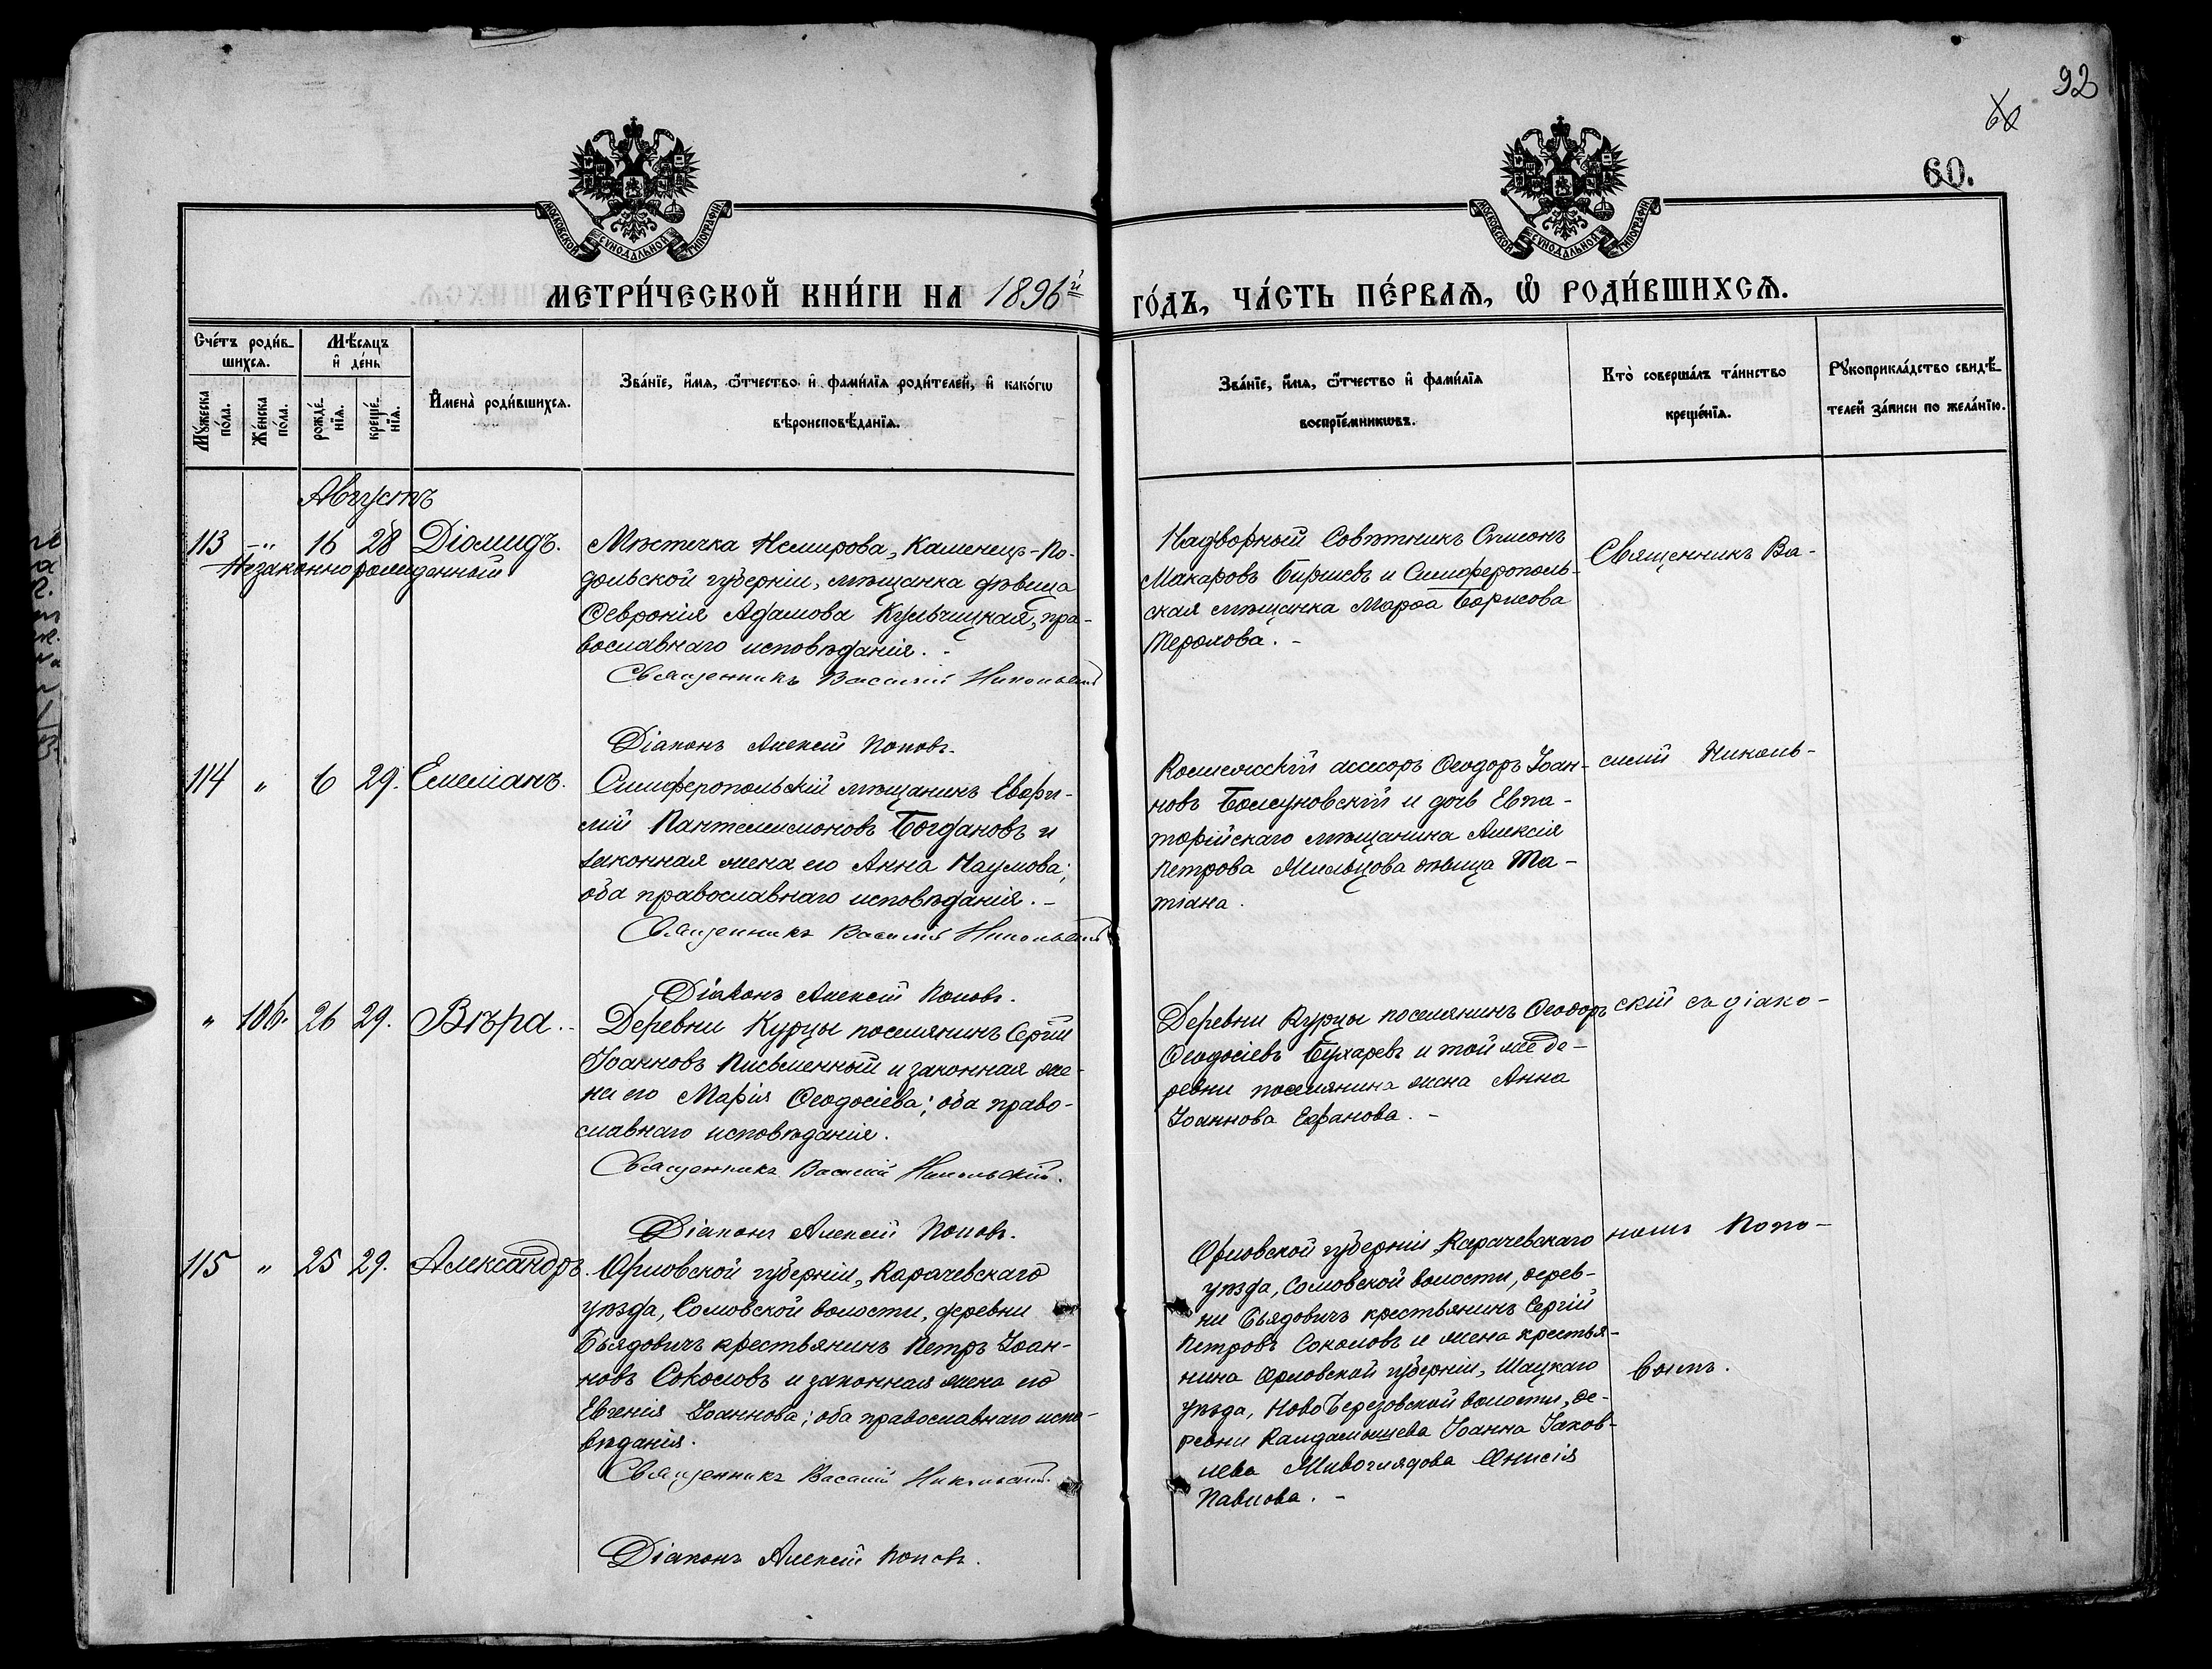 92
60
60.
МОСКОВСКОЙ СѴНОДАЛЬНОЙ ТИПОГРАФІИ
МОСКОВСКОЙ СѴНОДАЛЬНОЙ ТИПОГРАФІИ
МЕТРИ́ЧЕСКОЙ КНИ́ГИ НА 1896й
ГО́ДЪ, ЧА́СТЬ ПЕ́РВАѦ, Ѡ҆ РОДИ́ВШИХСѦ.
Сче́тъ роди́в-
шихсѧ.
Мꙋ́жеска по́ла.
Же́нска по́ла.
Мѣ́сѧцъ
и҆ де́нь
рожде́нїѧ.
креще́нїѧ.
И҆мена̀ роди́вшихсѧ.
Зва́нїе, и҆́мѧ, ѻ҆́тчество и҆ фами́лїѧ роди́телей, и҆ како́гѡ
вѣроисповѣ́данїѧ.
Зва́нїе, и҆́мѧ, ѻ҆́тчество и҆ фами́лїѧ
воспрїе́мникѡвъ.
Кто̀ соверша́лъ та́инство
креще́нїѧ.
Рꙋкоприкла́дство свидѣ́-
телей за́писи по жела́нїю.
Августъ
113 " 16 28 Діомидъ.
Незаконнорожденный
Мѣстечка Немирова, Каменец-По-
дольской губерніи, мѣщанка дѣвица
Ѳевронія Адамова Кульчицкая, пра-
вославнаго исповѣданія. -
Священникъ Василій Никольскій
Діаконъ Алексій Поповъ.
Надворный Совѣтникъ Симонъ
Макаровъ Биршевъ и Симферополь-
ская мѣщанка Марѳа Борисова
Терохова. -
Священникъ Ва-
114 " 6 29. Емеліанъ.
Симферопольскій мѣщанинъ Евфи-
мій Пантелеимоновъ Богдановъ и
законная жена его Анна Наумова;
оба православнаго исповѣданія. -
Священникъ Василій Никольскій
Діаконъ Алексій Поповъ.
Коллежскій ассесоръ Ѳеодоръ Іоан-
новъ Болсуновскій и дочь Евпа-
торійскаго мѣщанина Алексія
Петрова Жильцова дѣвица Та-
тіана.
силій Николь-
" 106. 26 29. Вѣра. -
Деревни Курцы поселянинъ Сергій
Іоанновъ Письменный и законная же-
на его Марія Ѳеодосіева; оба право-
славнаго исповѣданія.
Священникъ Василій Никольскій.
Діаконъ Алексій Поповъ.
Деревни Курцы поселянинъ Ѳеодоръ
Ѳеодосіевъ Бухаревъ и той же де-
ревни поселянина жена Анна
Іоаннова Ефанова. -
скій съ діако-
115 " 25 29. Александръ.
Орловской губерніи, Карачевскаго
уѣзда, Сомовской волости, деревни
Бьядовичъ крестьянинъ Петръ Іоан-
новъ Соколовъ и законная жена его
Евгенія Іоаннова; оба православнаго испо-
вѣданія.
Священникъ Василій Никольскій.
Діаконъ Алексій Поповъ.
Орловской губерніи, Карачевскаго
уѣзда, Сомовской волости, дерев-
ни Бьядовичъ крестьянинъ Сергій
Петровъ Соколовъ и жена крестья-
нина Орловской губерніи, Шацкаго
уѣзда, Ново Березовской волости, де-
ревни Іоанна Іаков-
лева Живоглядова Анисія
Павлова. -
номъ Попо-
вымъ.